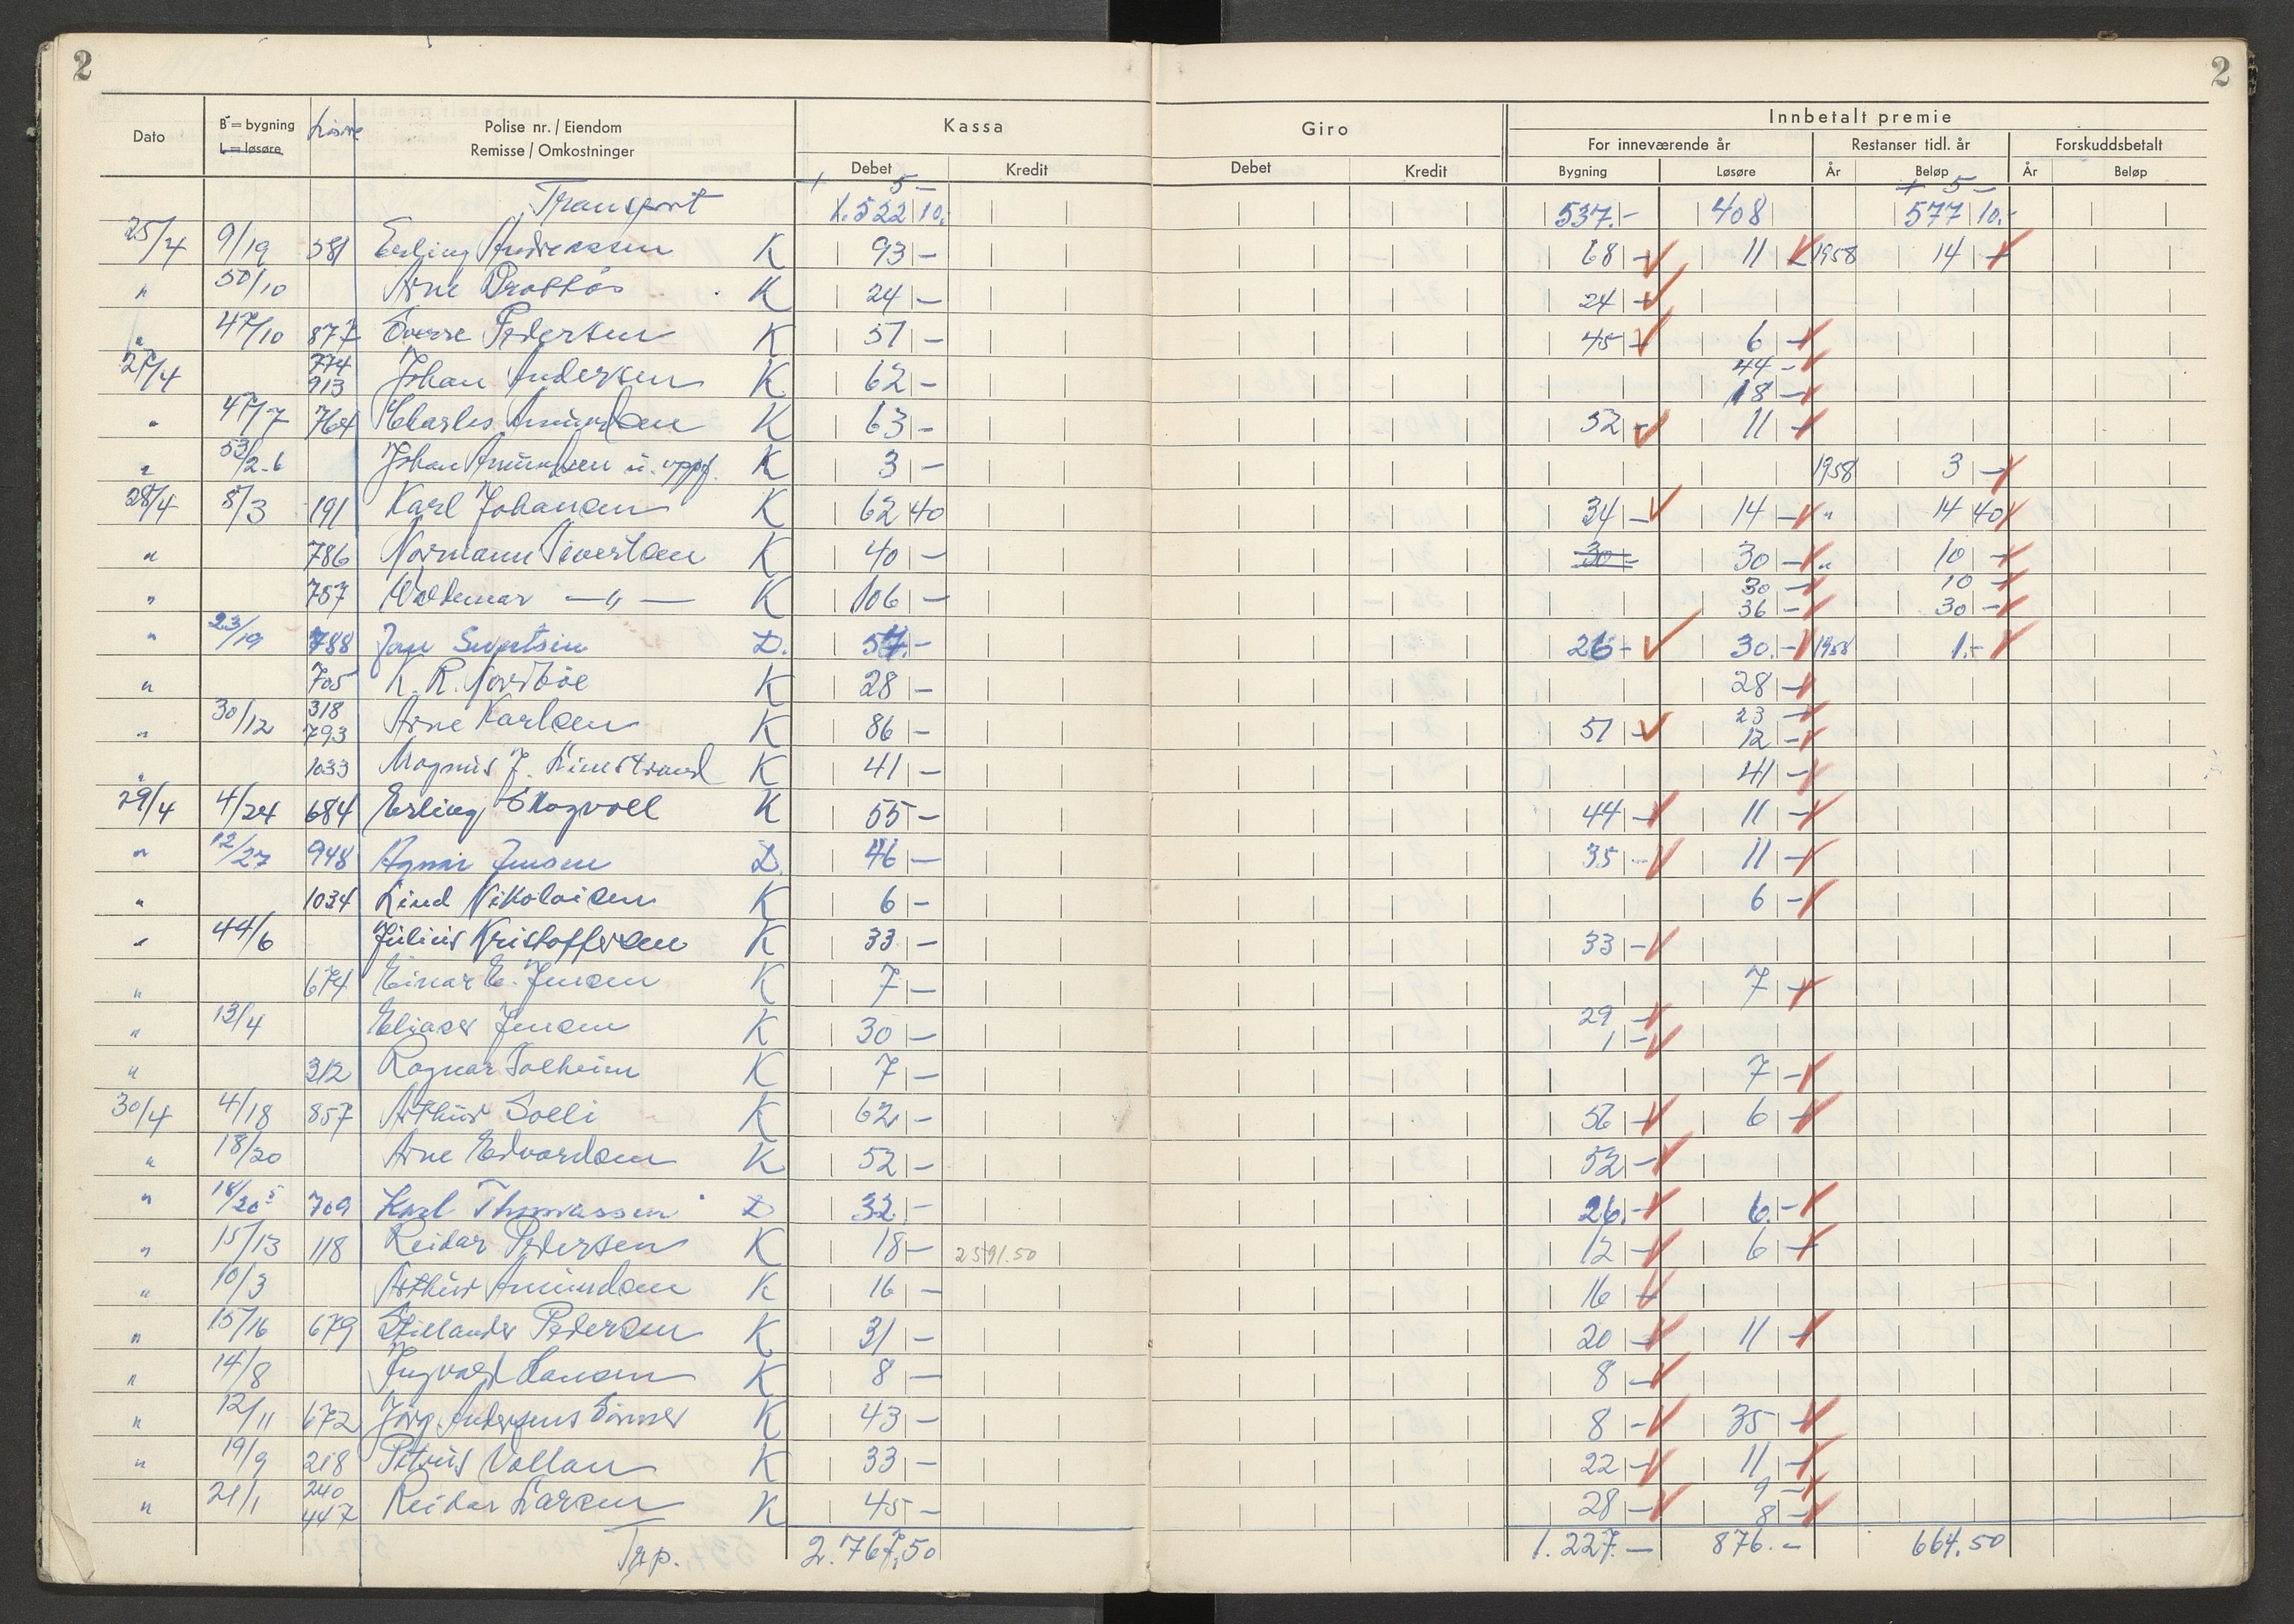 2 2
Dato B = bygning L = løsøre Løsøre Polise nr. / Eiendom Remisse / Omkostninger Kassa Debet Kredit Giro Debet Kredit Innbetalt premie For inneværende år Bygning Løsøre Restanser tidl. år År Beløp Forskuddsbetalt År Beløp
+ 5- + 5-
Transport 1.522 10. 537.- 408 577 10.-
25/4 9/19 581 Erling Andreassen K 93 - 68 - 11 - 1958 14 -
" 50/10 Arne K 24 - 24 -
" 47/10 877 Sverre Pedersen K 51 - 45 - 6 -
27/4 774 913 Johan Andersen K 62 - 44 - 18 -
" 47/7 764 Charles Amundsen K 63 - 52 - 11 -
" 53/2-6 Johan Amundsen u. oppg. K 3 - 1958 3 -
28/4 8/3 191 Karl Johansen K 62 40 34 - 14 - " 14 40
" 786 Normann Sivertsen K 40 - 30 - 30 - " 10 -
" 757 Waldemar —"— K 106 - 30 - 36 - 10 - 30 -
" 23/19 788 Jan Sivertsen D. 57.- 26 - 30.- 1958 1.-
" 705 K. R. Nordbøe K 28 - 28 -
" 30/12 318 793 Arne Karlsen K 86 - 51 - 23 - 12 -
" 1033 Magnus J. Limstrand K 41 - 41 -
29/4 4/24 684 Erling Skogvoll K 55 - 44 - 11 -
" 12/27 948 Agnar Jensen D. 46 - 35 - 11 -
" 1034 Lind Nikolaisen K 6 - 6 -
" 44/6 Julius Kristoffersen K 33 - 33 -
" 674 Einar E. Jensen K 7 - 7 -
" 13/4 Eliaser Jensen K 30 - 29 - 1 -
" 312 Ragnar Solheim K 7 - 7 -
30/4 4/18 857 Arthur Solli K 62 - 56 - 6 -
" 18/20 Arne Edvardsen K 52 - 52 -
" 18/20 5 709 Karl Thomassen D 32 - 26.- 6.-
" 15/13 118 Reidar Pedersen K 18 - 2591.50 12 - 6 -
" 10/3 Arthur Amundsen K 16 - 16 -
" 15/16 679 Stillander Pedersen K 31 - 20 - 11 -
" 14/8 Ingvard Hansen K 8 - 8 -
" 12/11 672 Jørg. Andersens Sønner K 43 - 8 - 35 -
" 19/9 218 Petrus Vollan K 33 - 22 - 11 -
" 21/1 240 447 Reidar Larsen K 45 - 28 - 9 - 8 -
Trp. 2.767,50 1.227.- 876.- 664.50